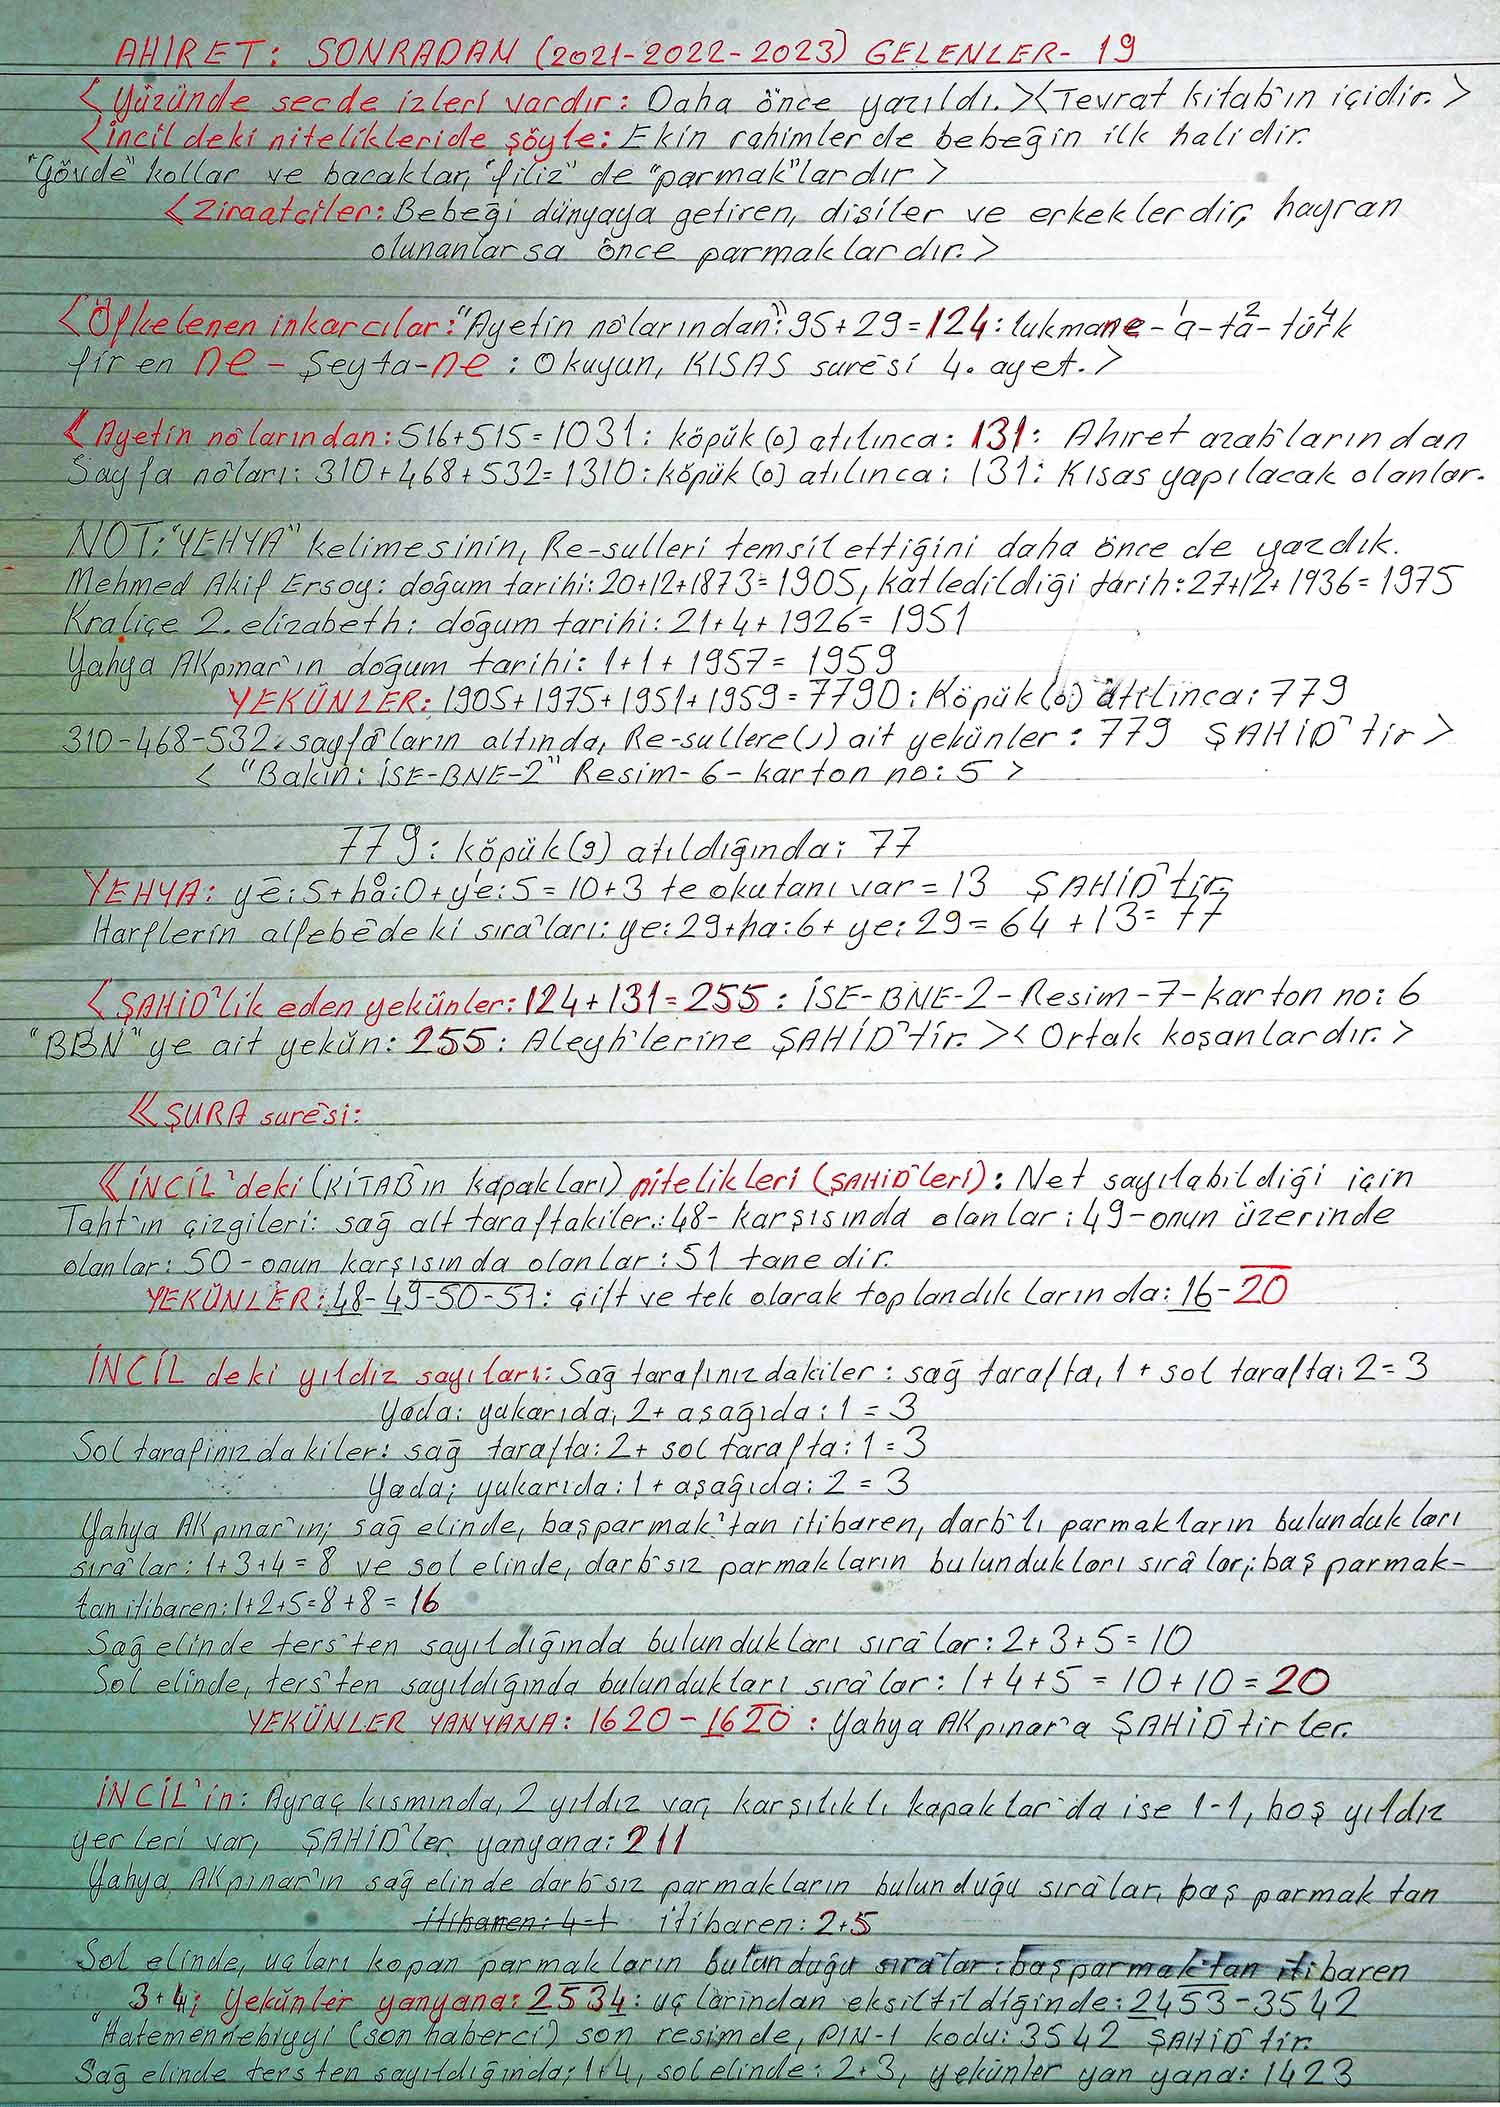 AHİRET: SONRADAN (2021-2022-2023) GELENLER- 19
<Yüzünde secde izleri vardır: Daha önce yazıldı.><Tevrat kitab'ın içidir.>
<incil deki nitelikleride şöyle: Ekin rahimler de bebeğin ilk halidir.
"Gövde" kollar ve bacaklar, "filiz" de "parmak"lardır>
<Ziraatçiler: Bebeği dünyaya getiren, disiler ve erkeklerdir, hayran
olunanlarsa önce parmaklardır.>
<Öfkelenen inkarcılar: "Ayetin nôlarından": 95+29=124: lukmane-a¹-ta²-türk⁴
firen ne - Şeyta-ne : Okuyun, KISAS surêsi 4. ayet.>
<Ayetin nôlarından: 516+515=1031: köpük (o) atılınca: 131: Ahiret azab'larından
Sayfa nôları: 310+468+532=1310: köpük (o) atılınca: 131: Kısas yapılacak olanlar.
NOT: "YEHYA" kelimesinin, Re-sulleri temsil ettiğini daha önce de yazdık.
Mehmed Akif Ersoy: doğum tarihi: 20+12+1873=1905, katledildiği tarih: 27+12+1936=1975
Kraliçe 2. elizabeth: doğum tarihi: 21+4+1926=1951
Yahya AKpınar'ın doğum tarihi: 1+1+1957=1959
YEKÜNLER: 1905+1975+1951+1959=7790: Köpük (o) atılınca: 779
310-468-532. sayfâların altında, Re-sullere(ı) ait yekünler: 779 ŞAHİD'tir>
<"Bakın: İSE-BNE-2" Resim-6-karton no: 5>
779: köpük(9) atıldığında: 77
YEHYA: ye:5+ha:0+ye:5=10+3 te okutanı var=13 ŞAHİD'tir.
Harflerin alfebê deki sırâları: ye: 29+ha:6+ ye: 29=64 +13=77
<ŞAHİD'lik eden yekünler: 124+131=255: İSE-BNE-2-Resim-7-karton no: 6
"BBN" ye ait yekün: 255: Aleyh'lerine ŞAHİD'tir.><Ortak koşanlardır.>
<<ŞURA surêsi:
<<İNCİL'deki (KİTAB'ın kapakları) nitelikleri (ŞAHİD'leri): Net sayılabildiği için
Taht'ın çizgileri: sağ alt taraftakiler: 48- karşısında olanlar: 49-onun üzerinde
olanlar: 50-onun karşısında olanlar: 51 tanedir.
YEKÜNLER: 48-49-50-51: çift ve tek olarak toplandıklarında: 16-20
İNCİL deki yıldız sayıları: Sağ tarafınızdakiler: sağ tarafta, 1+ sol tarafta: 2=3
Yada: yukarıda; 2+ aşağıda: 1=3
Sol tarafınızdakiler: sağ tarafta: 2+ sol tarafta: 1=3
Yada; yukarıda: 1+aşağıda: 2=3
Yahya AKpınar'ın; sağ elinde, başparmak'tan itibaren, darb'lı parmakların bulundukları
sırâlar: 1+3+4=8 ve sol elinde, darb'sız parmakların bulundukları sırâlar; baş parmak-
tan itibaren: 1+2+5=8+8=16
Sağ elinde ters'ten sayıldığında bulundukları sırâlar: 2+3+5=10
Sol elinde, ters'ten sayıldığında bulundukları sırâlar: 1+4+5=10+10=20
YEKÜNLER YANYANA: 1620-1620: Yahya AKpınar'a ŞAHİD'tirler.
İNCİL'in: Ayraç kısmında, 2 yıldız var, karşılıklı kapaklar'da ise 1-1, boş yıldız
yerleri var, ŞAHİD'ler yanyana: 211
Yahya AKpınar'ın sağ elinde darb'sız parmakların bulunduğu sırâlar, baş parmaktan
itibaren: 4-1 itibaren: 2+5
Sol elinde, uçları kopan parmakların bulunduğu sırâlar: başparmak'tan itibaren
3+4; Yekünler yanyana: 2534: uçlarından eksiltildiğinde: 2453-3542
"Hatemennebiyyi (son haberci) son resimde, PIN-1 kodu: 3542 ŞAHİD'tir.
Sağ elinde tersten sayıldığında; 1+4, sol elinde: 2+3, yekünler yan yana: 1423